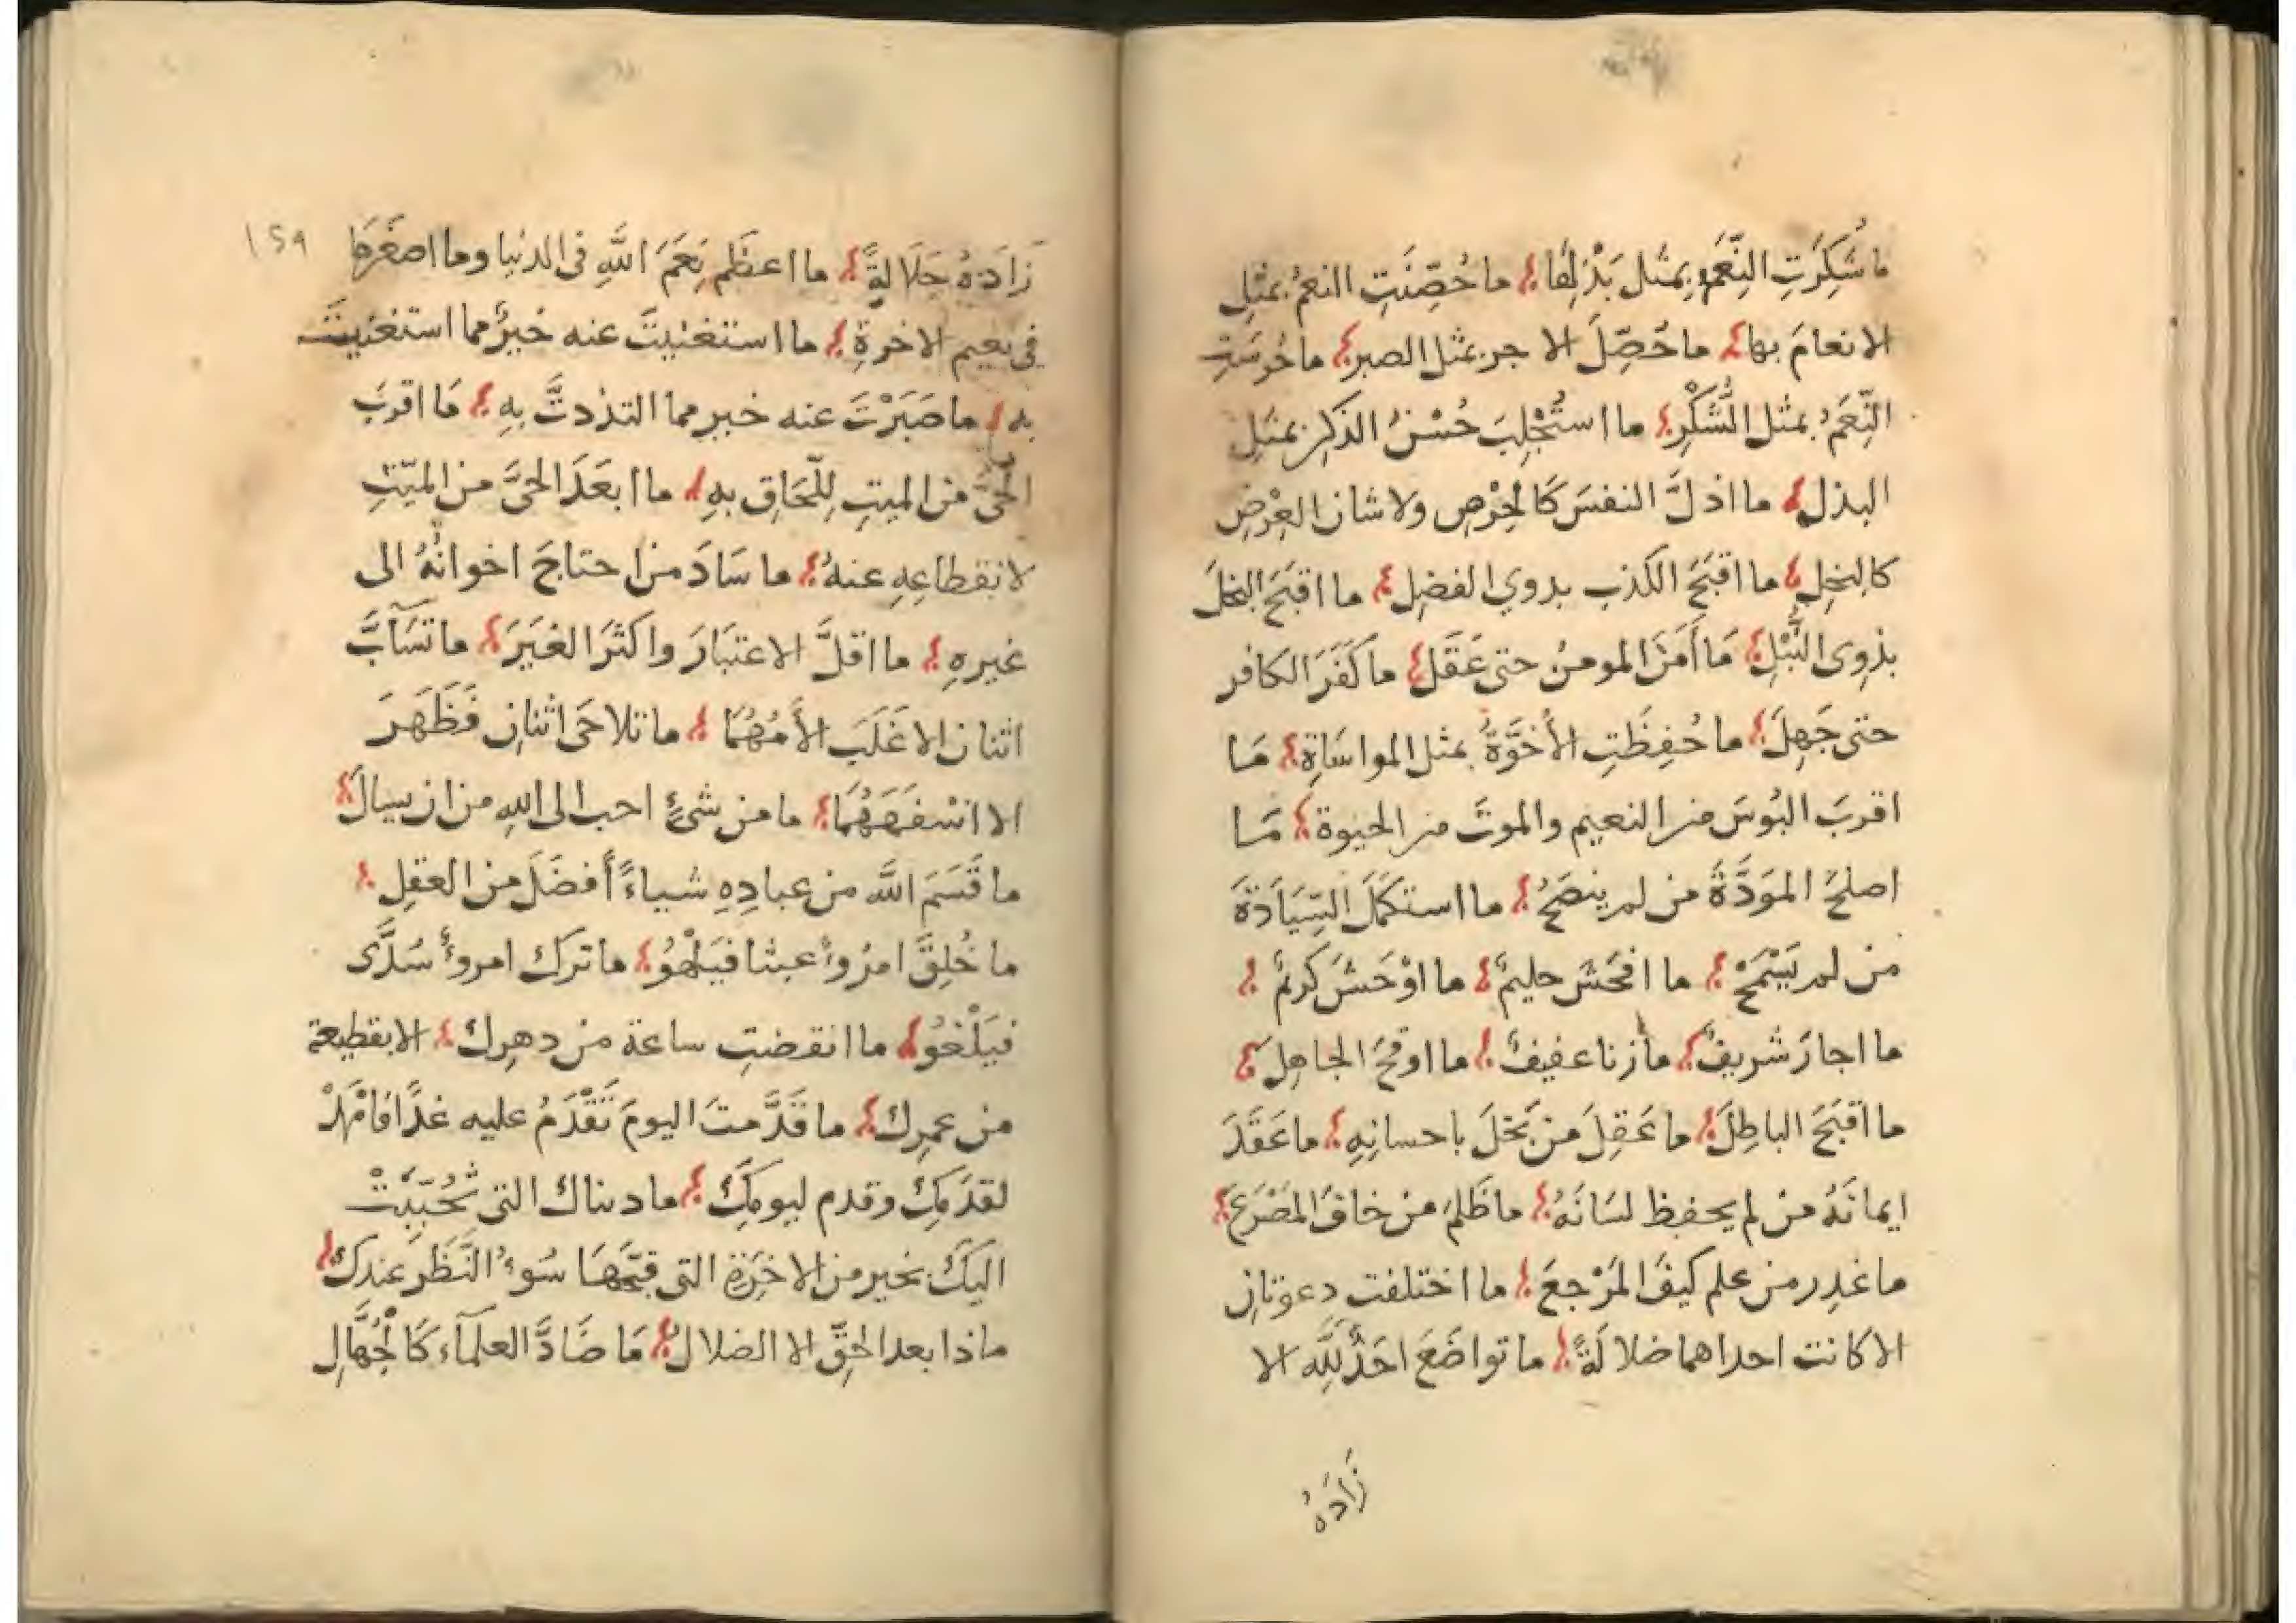 ما شُكِرَتِ النِّعَمُ بِمثل بَذْلِهَا ما حُصِّنَتِ النعمُ بمثلِ
الانعامَ بها ما حُصِّلَ الاجر بمثل الصبر ما حُرِسَتِ
النِّعَمُ بمثل الشُّكْرِ ما استُجْلِبَ حُسْنُ الذكرِ بمثلِ
البذل ما اذلَّ النفسَ كَالحِرْصِ ولا شان العِرْضِ
كالبخلِ ما اقبَحَ الكذب بدوي الفضلِ ما اقبَحَ البخلَ
بذوِى النُّبْلِ مَا أَمَنَ المومنُ حتى عَقَلَ ما كَفَرَ الكافر
حتى جَهِلَ ما حُفِظَتِ الأُخوَّةُ بمثل المواسَاةِ مَا
اقربَ البُوسَ من النعيم والموتَ من الحيوة مَا
اصلحَ المَوَدَّةَ من لم ينصَحُ ما استكمَلَ السِّيَادَةَ
من لم يَسْمَحْ ما افحَشَ حليمٌ ما اوْحَشَ كريمٌ
ما اجارَ شريفٌ ما زنا عفيفٌ ما اوقحَ الجاهِلَ
ما اقبَحَ الباطِلَ ما عَقِلَ من بَخلَ باحسانِهِ ما عَقَدَ
ايمانَهُ من لم يحفِظ لسَانَهُ ما ظَلمَ من خافَ المَصْرَعَ
ما غدِر من علم كيفَ المَرْجعَ ما اختلفت دعوتانِ
الا كانت احداهما ضلالَةً ما تواضَعَ احَدٌ لِلَّه الا
زَادَهُ
١٥٩
زَادَهُ جَلَالةً ما اعظَم نِعَمَ اللَّهِ فى الدنيا وما اصغَرَهَا
فى نعيم الاخرةِ ما استغنيتَ عنه خيرٌ مما استغنيتَ
به ما صَبَرْتَ عنه خير مما التذدتَّ بِهِ مَا اقربَ
الحَّىَ من الميتِ لِلّحَاقِ بهِ ما ابعَدَ الحىَّ من الميّتِ
لانقطاعِهِ عنهُ ما سَادَ من احتاجَ اخوانُهُ الى
غيرهِ ما اقلَّ الاعتبَارَ واكثَرَ الغيَرَ ما تَسَآبَّ
اثنان الا غَلَبَ الأَمُهُمَا ما تلاحَى اثنانِ فَظَهَرَ
الا اسْفَهَهُمَا ما من شىءٍ احب الى اللهِ من ان يسالَ
ما قَسَمَ اللَّه من عبادِهِ شياءً أَفضَلَ من العقلِ
ما خُلِقَ امرُوٌ عبثا فيَلْهُوُ ما ترك امروءٌ سُدًى
فيَلْغُوُ ما انقضتِ ساعة من دهرِك الا بقطيعة
من عمرِك ما قَدَّمتَ اليومَ تَقْدَمُ عليه غدًا فامْهَدْ
لقدَمِكَ وقدم ليومِكَ ما دنياك التى تُحبِّبَتْ
اليكَ بخير من الاخَرَةِ التى قبَّحَهَا سُوءُ النَّظَر عندِكَ
ماذا بعد الحقِّ الا الضلال مَا ضَادَّ العلمَآء كَالجُهَّالِ